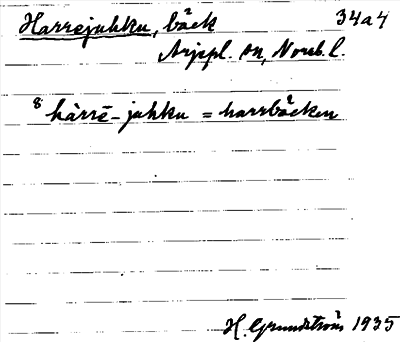 Harrsejuhku, bäck 34a4
Arjepl. sn, Norrb. l.
8 hàrrē-juhku = harrbäcken
H. Grundström 1935